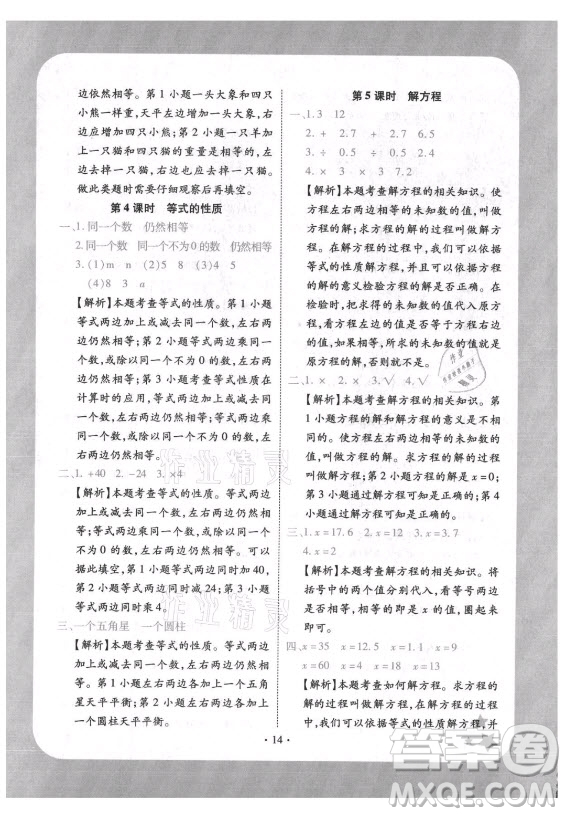 边依然相等。第 1 小题一头大象和四只
小熊一样重,天平左边增加四只小熊,右
边应增加四只小熊;第 2 小题天平左边加
上一只猫和四只猫的重量是相等的,右边
去掉一只猫,左边也应该去掉一只猫。
做此类题时需要仔细观察后再填空。
第 4 课时 等式的性质
一、1. 同一个数 仍然相等
2. 同一个数 同一个不为 0 的数 仍然相等
3. (1)m a (2)9 15 8 4
【解析】本题考查等式的性质。第 1 小题
等式两边加上或减去同一个数,左右两边
仍然相等;第 2 小题等式两边乘同一个
数,或除以同一个不为 0 的数,左右两边
仍然相等;第 3 小题考查等式的性质在
计算时的应用,左右两边仍然相等。
二、1. +40 2. -24 3. ×4
【解析】本题考查等式的性质。等式两边
加上或减去同一个数,左右两边仍然相
等。等式两边乘同一个数,或除以同一个
不为 0 的数,左右两边仍然相等。所以
第 1 小题等式两边同时加 40,第
2 小题等式两边同时减 24;第 3 小题等
式两边同时乘 4。
三、一个五角星 一个圆柱
【解析】本题考查等式的性质。等式两边加
上或减去同一个数,左右两边仍然相等。
所以第 1 小题天平左边加上一个五角
星天平平衡;第 2 小题天平左边加上一
个圆柱天平平衡。
第 5 课时 解方程
一、1. 3 12
2. + 2.7 + 2.7 6.5
3. ÷ 0.5 ÷ 0.5 12
4. × × 3 7.2
【解析】本题考查解方程的相关知识。使
方程左右两边相等的未知数的值,叫做
方程的解;求方程的解的过程,叫做解
方程。解方程的过程中,我们可以依据
等式的性质解方程,并且可以依据解方
程的意义检验方程的解是否正确。在
检验时,把求得的未知数的值代入原方
程,看方程左边的值是否等于方程右边
的值,如果相等,所求的未知数的值就
是原方程的解,否则就不是。
二、1. × 2. × 3. √ 4. √
【解析】本题考查解方程的相关知识。第
1 小题方程的解和解方程的意义是不同
的。使方程左右两边相等的未知数的
值,叫做方程的解。求方程的解的过程
叫做解方程;第 2 小题方程的解是 x=0;
第 3 小题通过检验可知是正确的;第 4
小题通过检验可知是正确的。
三、1. x=17.6 2. x=12 3. x=1.7
4. x=2
【解析】本题考查解方程的相关知识。将
括号中的两个数值分别代入方程,看是
否相等,相等的即是 x 的值,圈起来即
可。
四、x=35 x=12.5 x=1.1 x=9
x=60 x=4 x=18
【解析】本题考查如何解方程。求方程的
解的过程叫做解方程。解方程的过程
中,我们可以依据等式的性质解方程,并
· 14 ·
作业精灵
作业精灵
答案圈
MXQE.COM